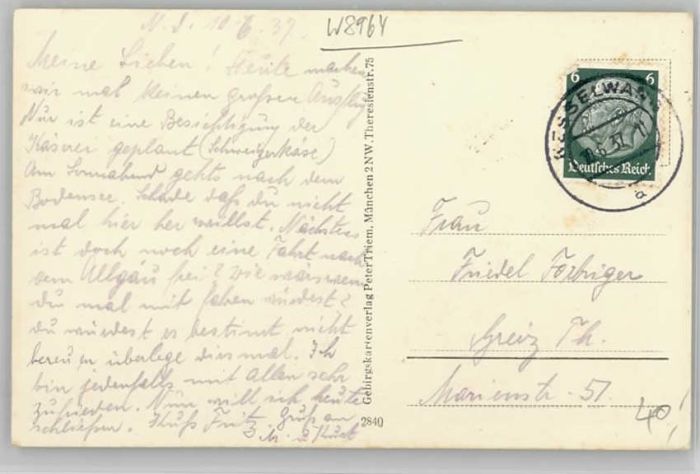 N. d. 10.6.37.
W8964
Meine Lieben! Heute machen
wir mal keinen großen Ausflug
Nur ist eine Besichtigung der
Käserei geplant (Schweizerkäse)
Am Sonnabend gehts nach dem
Bodensee. Schade daß du nicht
mal hier her willst. Nächstens
ist doch noch eine Fahrt nach
dem Allgäu frei? Wie wärs wenn
du mal mit fahren würdest?
du würdest es bestimt nicht
bereuen überlege dies mal. Ich
bin jedenfalls mit allem sehr
zufrieden. Nun will ich heute
schließen. Kuß Fritz. Gruß an
Kurt
Gebirgskartenverlag Peter Thiem, München 2 NW, Theresienstr. 75
2840
6 6
Deutsches Reich
NESSELWANG
a
Frau
Friedel Forbriger
Greiz Th.
Marienstr. 51.
40,